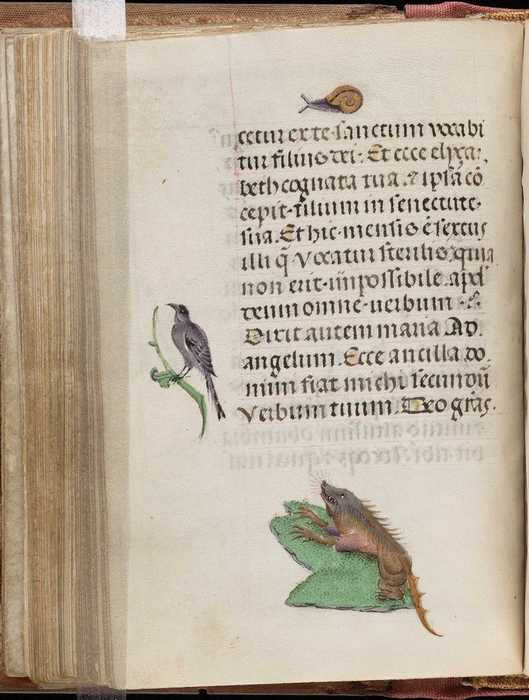 cetur ex te sanctum vocabi
tur filius dei. Et ecce elyza
beth cognata tua. & ipsa cō
cepit filium in senectute
sua. Et hic mensis ē sextus
illi q̄ vocatur sterilis, quia
non erit inpossibile apd
deum omne verbum.
Dixit autem maria Ad
angelum. Ecce ancilla do
mini fiat michi secundū
verbum tuum. Deo grās.